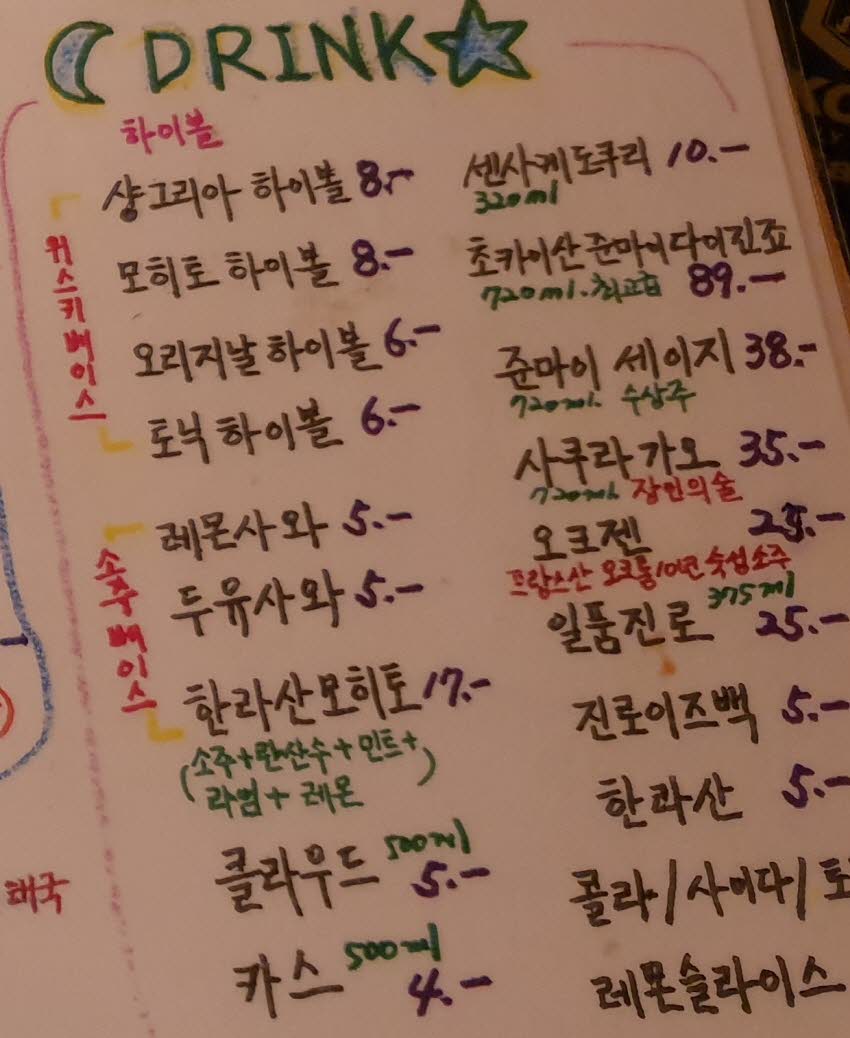 DRINK
하이볼
위스키베이스
샹그리아 하이볼 8.-
모히토 하이볼 8.-
오리지날 하이볼 6.-
토닉 하이볼 6.-
소주베이스
레몬사와 5.-
두유사와 5.-
한라산모히토 17.-
(소주+탄산수+민트+
라임+레몬)
클라우드 500ml
5.-
카스 500ml
4.-
센사케도쿠리 10.-
320ml
초카이산준마이다이긴죠
720ml.최고급 89.-
준마이 세이지 38.-
720ml. 수상주
사쿠라가오 35.-
720ml 장인의술
오크젠
프랑스산 오크통10년숙성소주
375ml
일품진로 25.-
진로이즈백 5.-
한라산 5.-
콜라/사이다/토
레몬슬라이스
태국